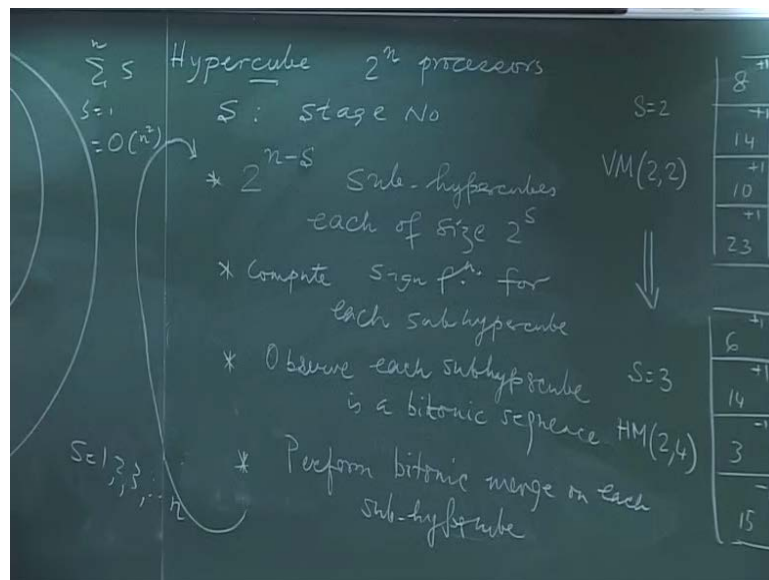 n
∑ S
S=1
= O(n²)
Hypercube 2ⁿ processors
S : Stage No
* 2ⁿ⁻ˢ Sub-hypercubes
each of size 2ˢ
* Compute Sign fⁿ. for
each subhypercube
* Observe each subhypercube
is a bitonic sequence
* Perform bitonic merge on each
sub-hypercube
S=1,2,3,...n
S=2
VM(2,2)
⇓
S=3
HM(2,4)
8 +1
14 +1
10 +1
23 +1
6 +1
14
3 -1
15 -